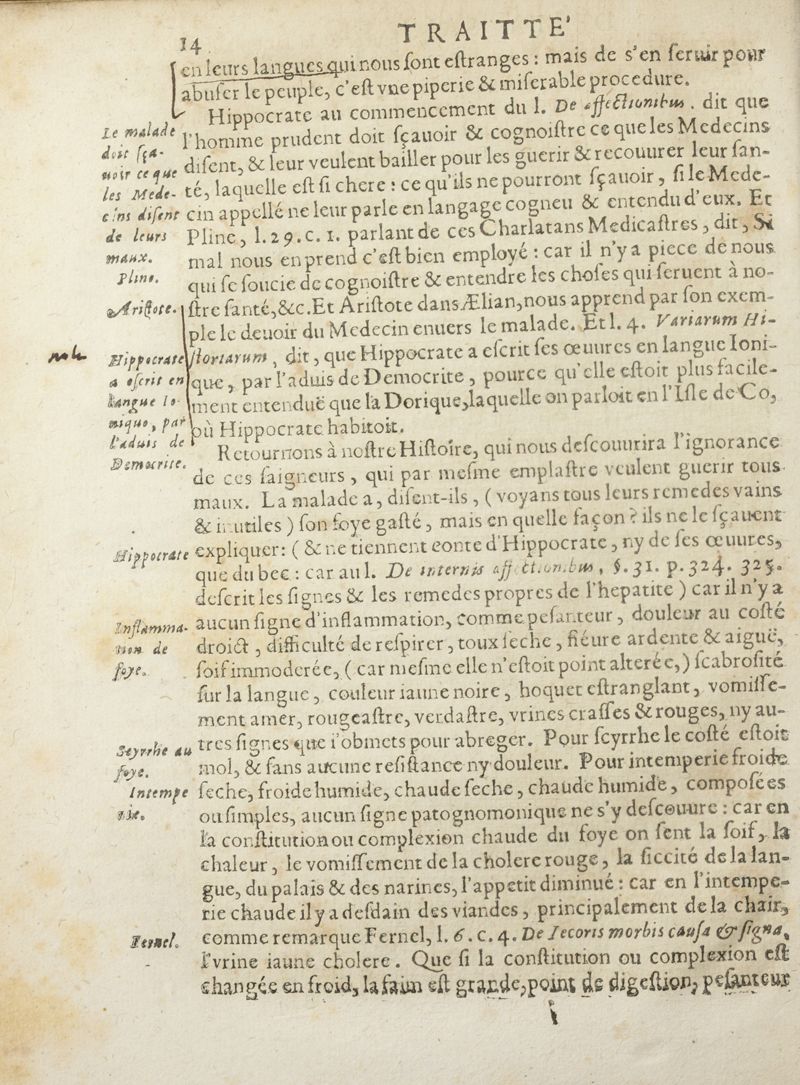 14
TRAITTE'
en leurs langues qui nous ſont eſtranges : mais de s'en ſeruir pour
abuſer le peuple, c'eſt vne piperie & miſerable procedure.
Hippocrate au commencement du l. De affectionibus . dit que
Le malade
l'homme prudent doit ſçauoir & cognoiſtre ce que les Medecins
doit ſça-
diſent, & leur veulent bailler pour les guerir & recouurer leur ſan-
uoir ce que
té, laquelle eſt ſi chere : ce qu'ils ne pourront ſçauoir, ſi le Mede-
les Mede-
cin appellé ne leur parle en langage cogneu & entendu d'eux. Et
cins diſent
Pline, l. 29. c. 1. parlant de ces Charlatans Medicaſtres, dit, Si
de leurs
mal nous en prend c'eſt bien employé : car il n'y a piece de nous
maux.
qui ſe ſoucie de cognoiſtre & entendre les choſes qui ſeruent à no-
Pline.
ſtre ſanté, &c. Et Ariſtote dans Ælian, nous apprend par ſon exem-
Ariſtote.
ple le deuoir du Medecin enuers le malade. Et l. 4. Variarum Hi-
ſtoriarum, dit, que Hippocrate a eſcrit ſes œuures en langue Ioni-
Hippocrate
que, par l'aduis de Democrite, pource qu'elle eſtoit plus facile-
a eſcrit en
ment entenduë que la Dorique, laquelle on parloit en l'Iſle de Co,
langue Io-
où Hippocrate habitoit.
nique, par
Retournons à noſtre Hiſtoire, qui nous deſcouurira l'ignorance
l'aduis de
de ces ſaigneurs, qui par meſme emplaſtre veulent guerir tous
Democrite.
maux. La malade a, diſent-ils, ( voyans tous leurs remedes vains
& inutiles ) ſon foye gaſté, mais en quelle façon ? ils ne le ſçauent
expliquer : ( & ne tiennent conte d'Hippocrate, ny de ſes œuures,
Hippocrate
que du bec : car au l. De internis affectionibus, §. 31. p. 324. 325.
deſcrit les ſignes & les remedes propres de l'hepatite ) car il n'y a
aucun ſigne d'inflammation, comme peſanteur, douleur au coſté
Inflamma-
droict, difficulté de reſpirer, toux ſeche, fiéure ardente & aiguë,
tion de
ſoif immoderée, ( car meſme elle n'eſtoit point alterée, ) ſcabroſité
foye.
ſur la langue, couleur iaune noire, hoquet eſtranglant, vomiſſe-
ment amer, rougeaſtre, verdaſtre, vrines craſſes & rouges, ny au-
tres ſignes que i'obmets pour abreger. Pour ſcyrrhe le coſté eſtoit
Scyrrhe au
mol, & ſans aucune reſiſtance ny douleur. Pour intemperie froide
foye.
ſeche, froide humide, chaude ſeche, chaude humide, compoſées
Intempe
ou ſimples, aucun ſigne patognomonique ne s'y deſcouure : car en
rie.
la conſtitution ou complexion chaude du foye on ſent la ſoif, la
chaleur, le vomiſſement de la cholere rouge, la ſiccité de la lan-
gue, du palais & des narines, l'appetit diminué : car en l'intempe-
rie chaude il y a deſdain des viandes, principalement de la chair,
comme remarque Fernel, l. 6. c. 4. De Iecoris morbis cauſa & ſigna,
Fernel.
l'vrine iaune cholere. Que ſi la conſtitution ou complexion eſt
changée en froid, la faim eſt grande, point de digeſtion, peſanteur